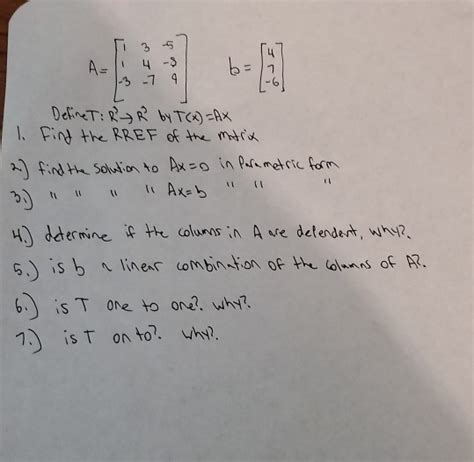 A = [1 3 -5
1 4 -3
-3 -7 9]
b = [4
7
-6]
Define T: R³ → R³ by T(x) = Ax
1. Find the RREF of the matrix
2.) find the solution to Ax=0 in Parametric form
3.) " " " " Ax=b " " "
4.) determine if the columns in A are dependent, why?.
5.) is b a linear combination of the columns of A?.
6.) is T one to one?. why?.
7.) is T on to?. why?.